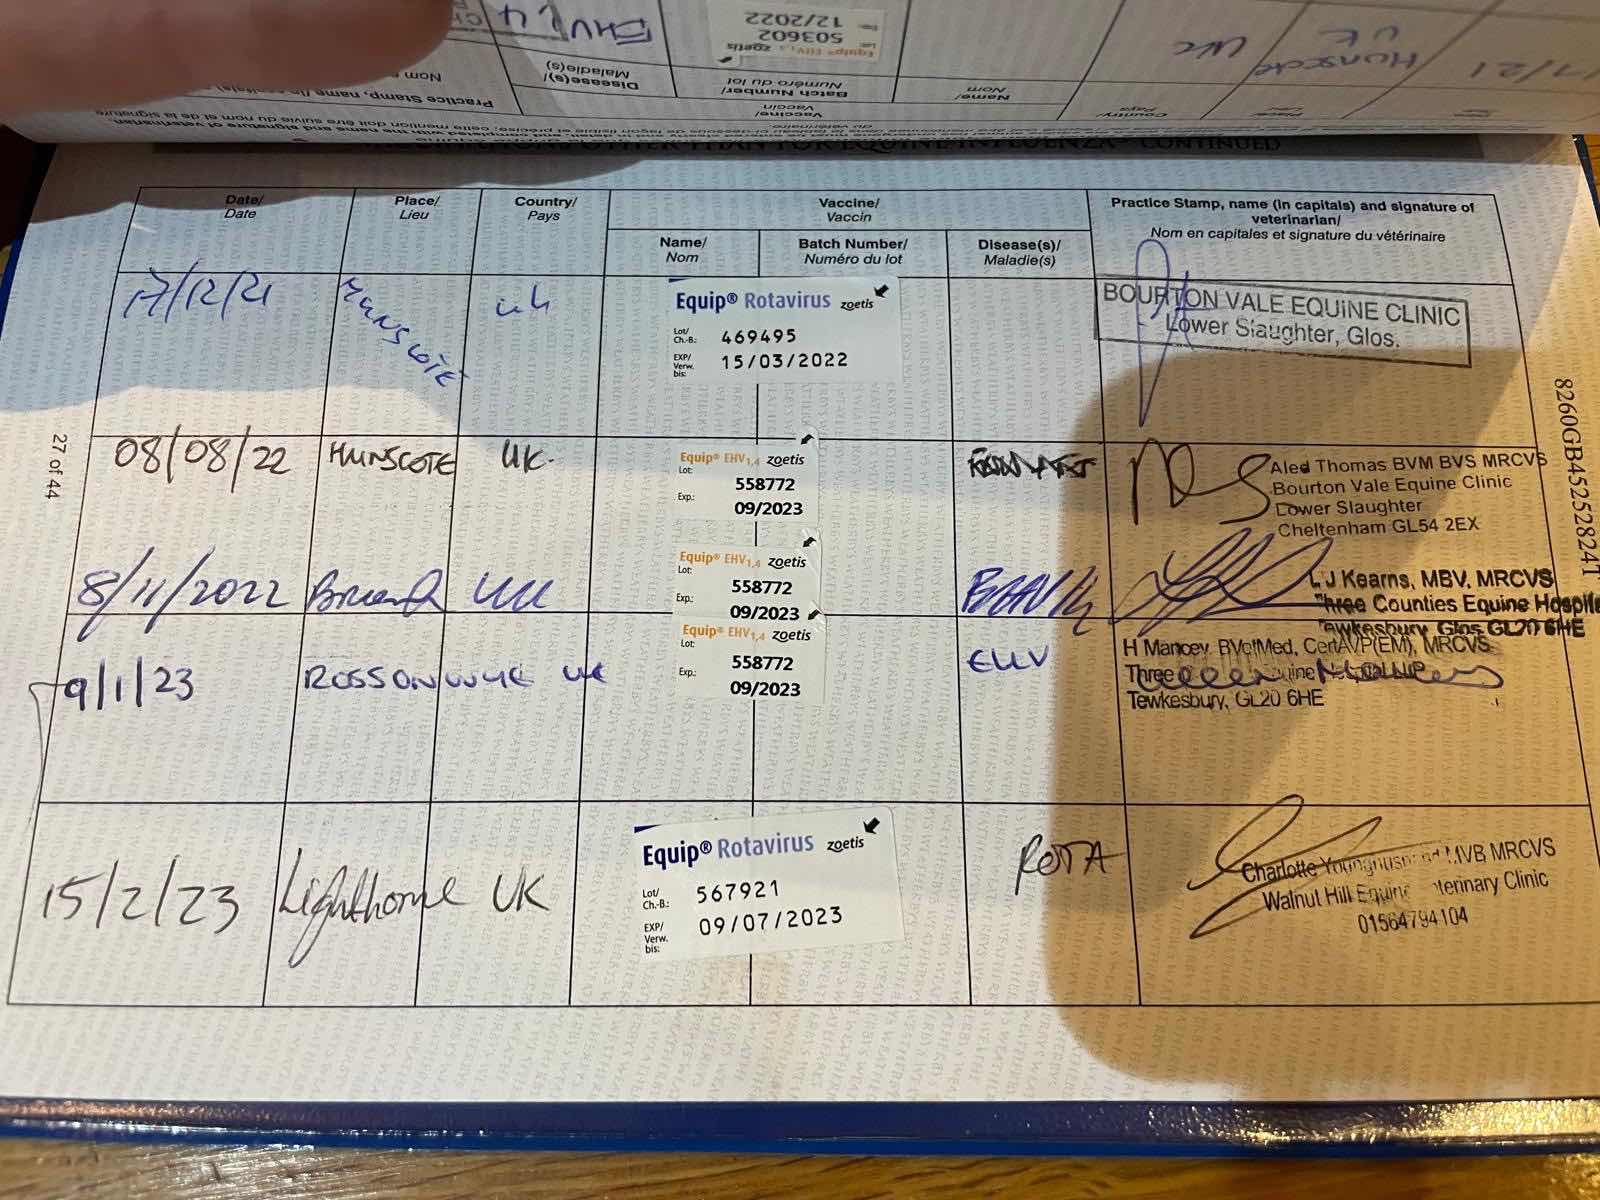 EHV1,4
Equip® EHV1,4 zoetis
503602
12/2022
Hunscote
UK
UK
Disease(s)/
Maladie(s)
Batch Number/
Numéro du lot
Name/
Nom
Vaccine/
Vaccin
Country/
Pays
Place/
Lieu
Practice Stamp, name (in capitals)
OTHER THAN FOR EQUINE INFLUENZA - CONTINUED
Date/
Date
Place/
Lieu
Country/
Pays
Vaccine/
Vaccin
Name/
Nom
Batch Number/
Numéro du lot
Disease(s)/
Maladie(s)
Practice Stamp, name (in capitals) and signature of
veterinarian/
Nom en capitales et signature du vétérinaire
17/12/21 HUNSCOTE UK
Equip® Rotavirus zoetis
Lot/
Ch.-B.: 469495
EXP/
Verw.
bis: 15/03/2022
BOURTON VALE EQUINE CLINIC
Lower Slaughter, Glos.
08/08/22 HUNSCOTE UK.
Equip® EHV1,4 zoetis
Lot:
558772
Exp.:
09/2023
Aled Thomas BVM BVS MRCVS
Bourton Vale Equine Clinic
Lower Slaughter
Cheltenham GL54 2EX
8/11/2022 UK
Equip® EHV1,4 zoetis
Lot:
558772
Exp.:
09/2023
L J Kearns, MBV, MRCVS
Three Counties Equine Hospital
Tewkesbury, Glos GL20 6HE
9/1/23 ROSSONWYE UK
Equip® EHV1,4 zoetis
Lot:
558772
Exp.:
09/2023
EHV
H Mancey, BVetMed, CertAVP(EM), MRCVS
Three
Tewkesbury, GL20 6HE
15/2/23 Lighthorne UK
Equip® Rotavirus zoetis
Lot/
Ch.-B.: 567921
EXP/
Verw.
bis: 09/07/2023
ROTA
Charlotte MVB MRCVS
Walnut Hill Equine Veterinary Clinic
01564794104
27 of 44
8260GB45252824T